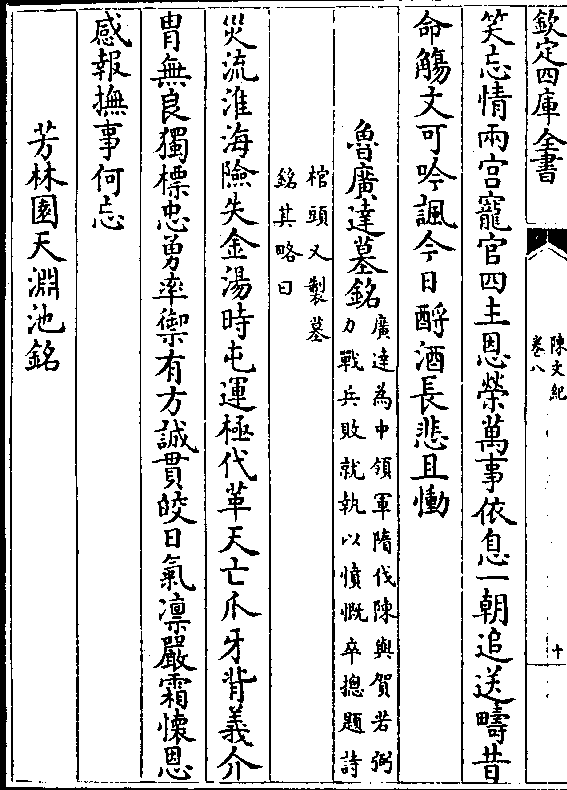 欽定四庫全書
陳文紀
卷八
十
笑忘情兩宫寵官四主恩榮萬事依息一朝追送疇昔
命觴文可吟諷今日酹酒長悲且慟
魯廣達墓銘
廣達為中領軍隋伐陳與賀若弼
力戰兵敗就執以憤慨卒揔題詩
棺頭又製墓
銘其略曰
災流淮海險失金湯時屯運極代革天亡爪牙背義介
胄無良獨標忠勇率禦有方誠貫皎日氣凛嚴霜懐恩
感報撫事何忘
芳林園天淵池銘